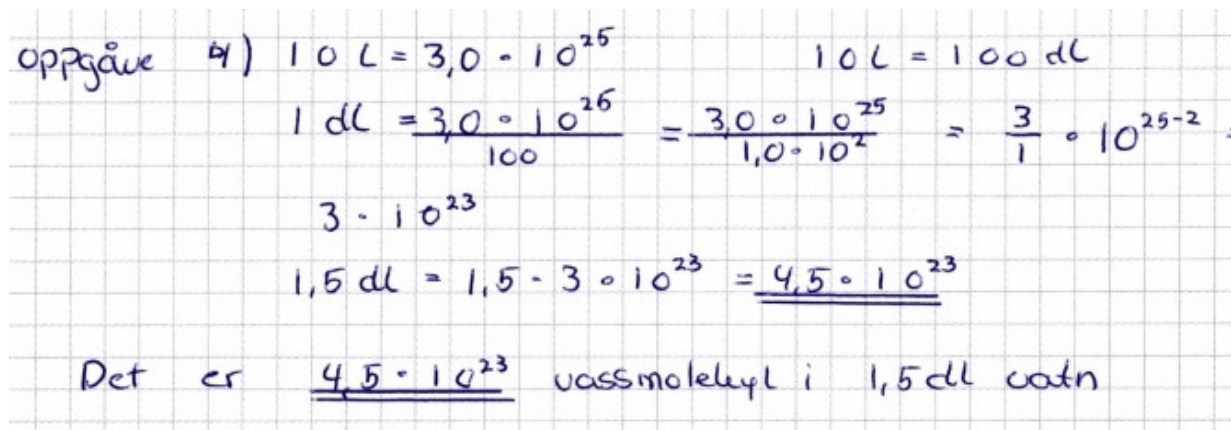 oppgåve 4) 10 L = 3,0 · 10²⁵ 10 L = 100 dL
1 dL = 3,0 · 10²⁵ / 100 = 3,0 · 10²⁵ / 1,0 · 10² = 3/1 · 10²⁵⁻² =
3 · 10²³
1,5 dL = 1,5 · 3 · 10²³ = 4,5 · 10²³
Det er 4,5 · 10²³ vassmolekyl i 1,5 dL vatn